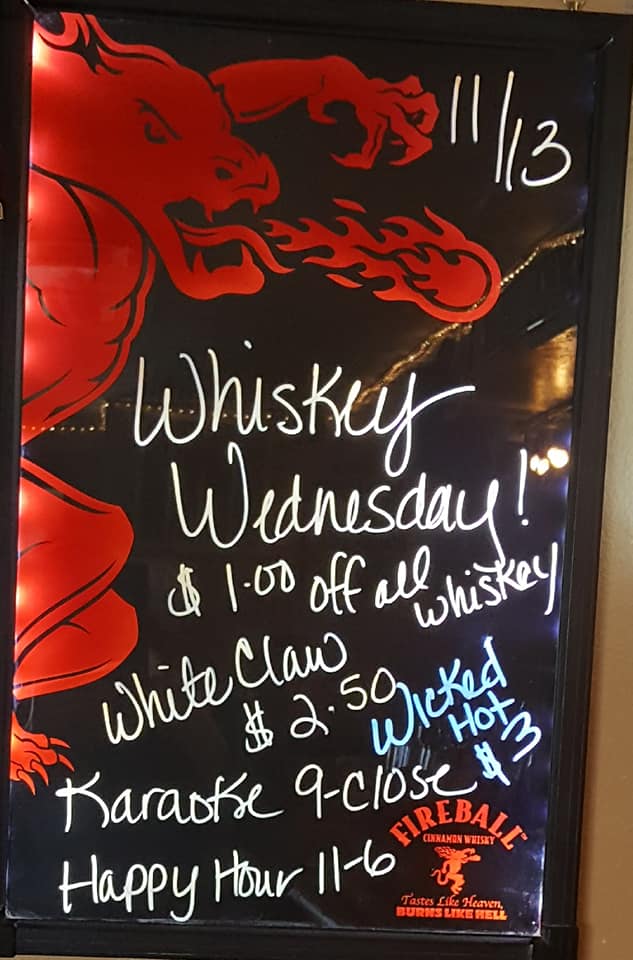 11/13
Whiskey
Wednesday!
$1.00 off all whiskey
White Claw
$2.50
Wicked
Hot
$3
Karaoke 9-close
Happy Hour 11-6
FIREBALL
CINNAMON WHISKY
Tastes Like Heaven,
BURNS LIKE HELL